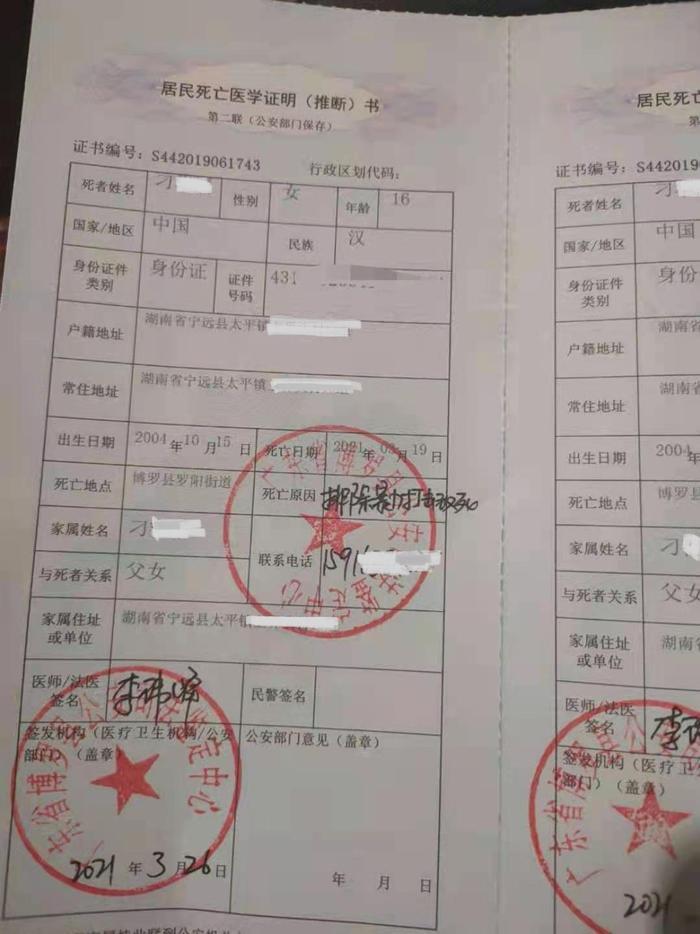 居民死亡医学证明（推断）书
第二联（公安部门保存）
证书编号：S442019061743 行政区划代码：
死者姓名 刁 性别 女 年龄 16
国家/地区 中国 民族 汉
身份证件类别 身份证 证件号码 431
户籍地址 湖南省宁远县太平镇
常住地址 湖南省宁远县太平镇
出生日期 2004年10月15日 死亡日期 2021年03月19日
死亡地点 博罗县罗阳街道 死亡原因 排除暴力打击致死
家属姓名 刁 联系电话 1591
与死者关系 父女
家属住址或单位 湖南省宁远县太平镇
医师/法医签名 民警签名
签发机构（医疗卫生机构/公安部门）（盖章） 公安部门意见（盖章）
2021年3月26日 年 月 日
居民死亡
第
证书编号：S442019
死者姓名 刁
国家/地区 中国
身份证件类别 身份
户籍地址 湖南省
常住地址 湖南省
出生日期 2004年
死亡地点 博罗县
家属姓名 刁
与死者关系 父女
家属住址或单位 湖南省
医师/法医签名
签发机构（医疗卫生机构/公安部门）（盖章）
2021